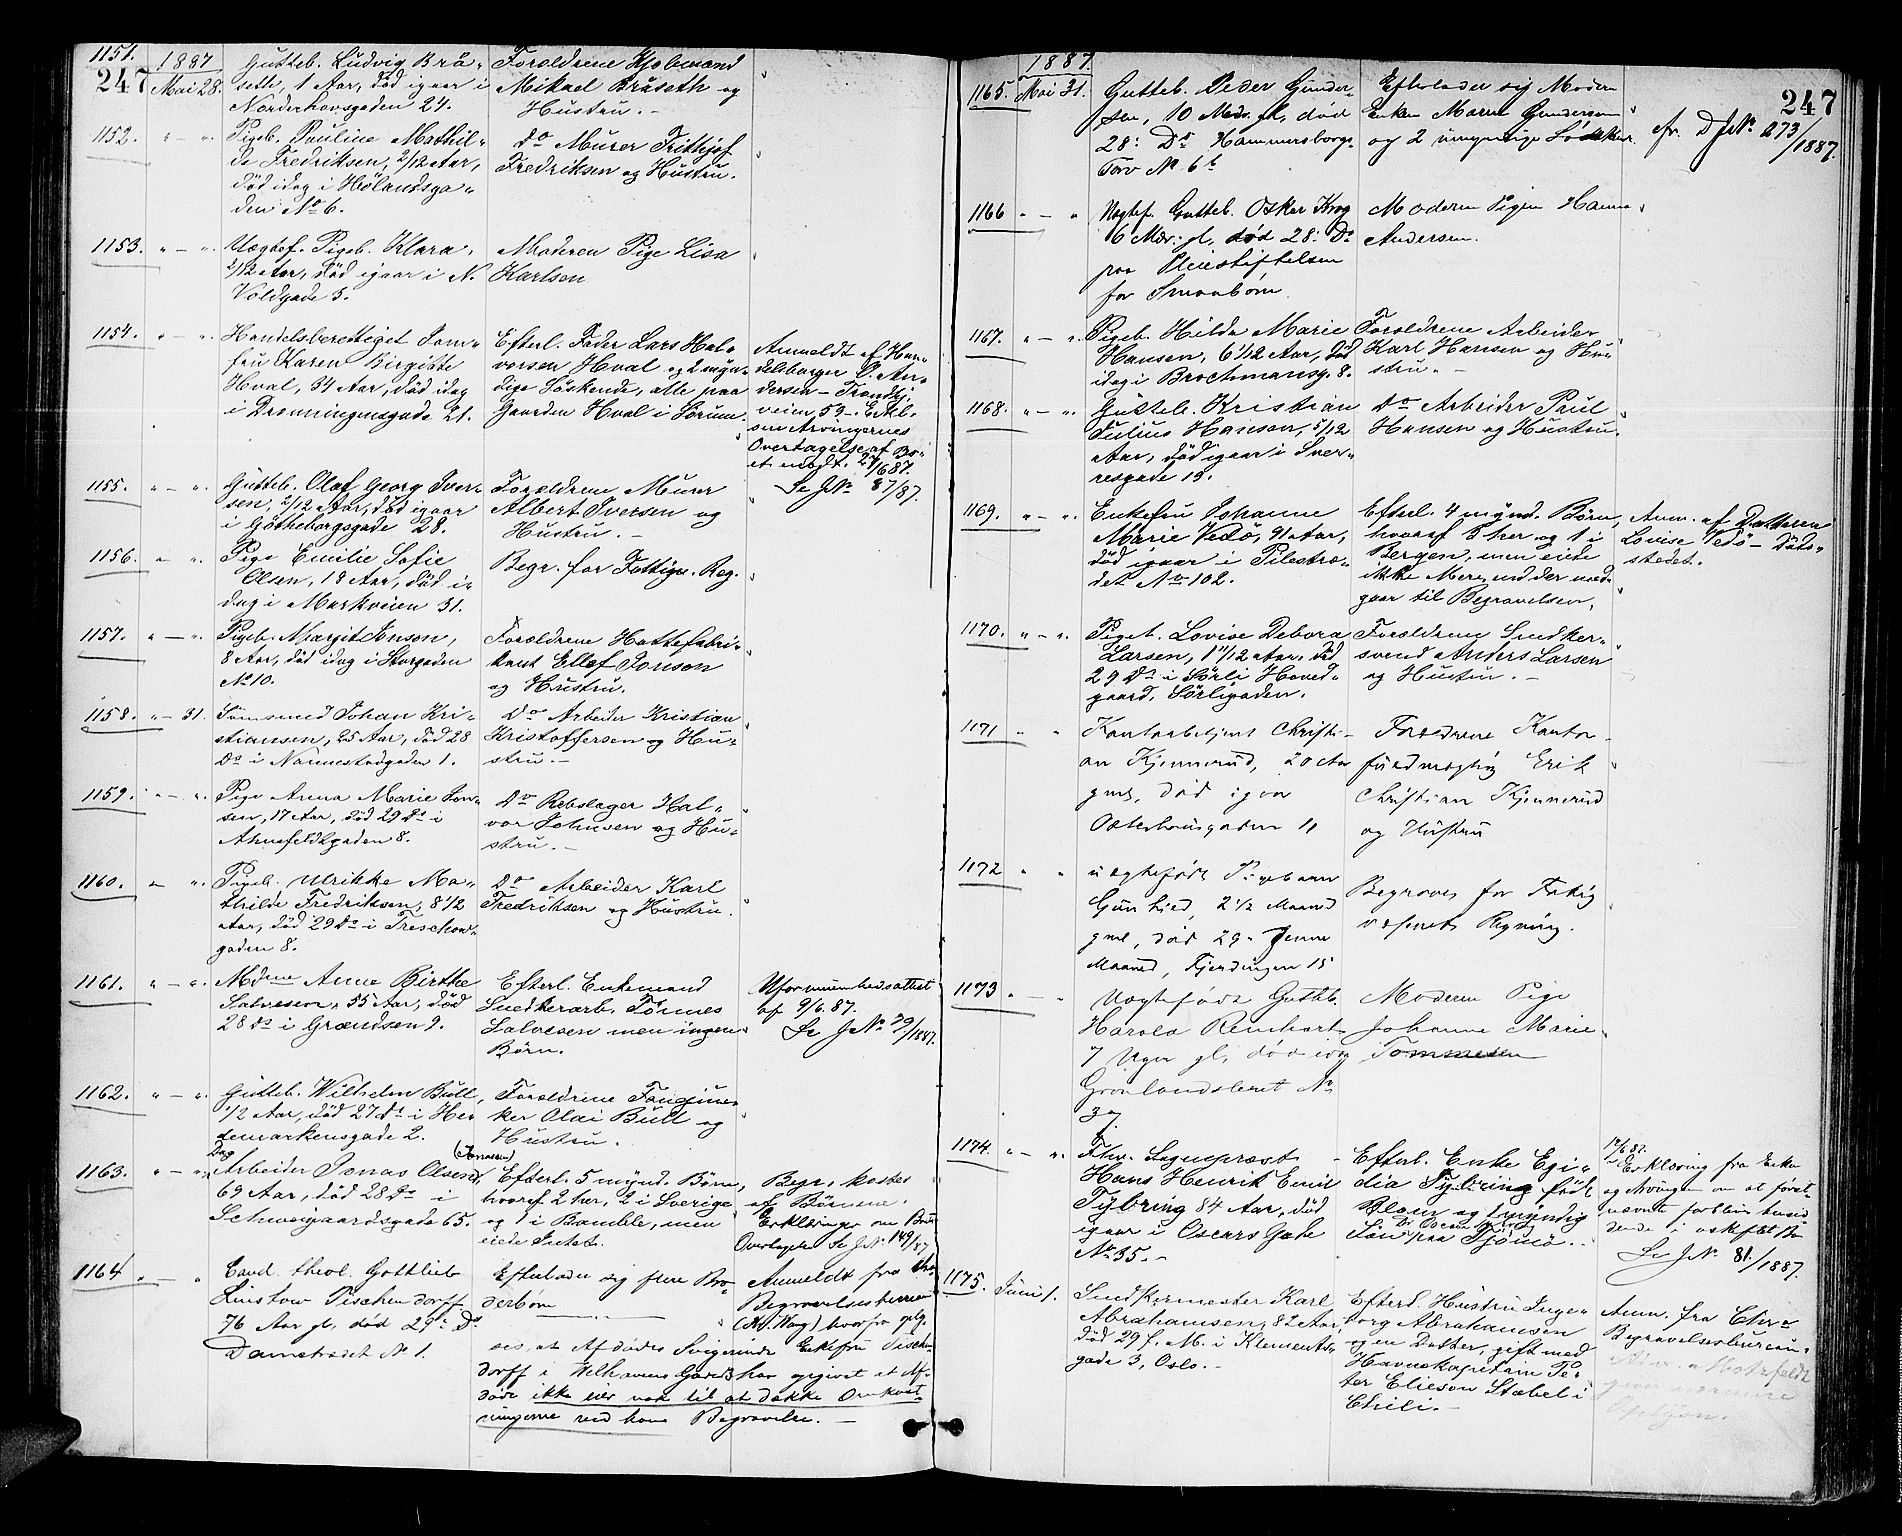 247
1151.
1887
Mai 28.
Gutteb. Ludvig Brå-
seth, 1 Aar, död igaar i
Norderhovsgaden 24.
Forældrene
Mikael Bråseth og
Hustru. -
1152. " - "
Pigeb. Pauline Mathil-
de Fredriksen, 2/12 Aar,
död idag i Hölandsga-
den No 6.
Do Murer Frithjof
Fredriksen og Hustru.
1153. " - "
Uægtef. Pigeb. Klara,
2/12 Aar, död igaar i N.
Voldgade 5.
Moderen Pige Lisa
Karlsen
1154. " - "
Handelsberettiget Jom-
fru Karen Birgitte
Hval, 34 Aar, död idag
i Dronningensgade 21.
Efterl. Fader Lars Hal-
vorsen Hval og 2 myn-
dige Söskende, alle paa
Gaarden Hval i Sörum
Anmeldt af Han-
delsborger O. An-
dersen - Trondhj.
veien 59 - Erkl.
om Arvingernes
Overtagelse af Bo-
et modt. 27/6 87.
Se J.No 87/87.
1155. " - "
Gutteb. Olaf Georg Iver-
sen, 2/12 Aar, död igaar
i Götheborgsgade 28.
Forældrene Murer
Albert Iversen og
Hustru. -
1156. " "
Pige Emilie Sofie
Olsen, 18 Aar, död i-
dag i Markveien 31.
Begr. for Fattigv. Reg.
1157. " - "
Pigeb. Margit Jonson,
8 Aar, död idag i Storgaden
No 10.
Forældrene Hattefabri-
kant Ellef Jonson
og Hustru.
1158. " - 31.
Sömsmed Johan Kri-
stiansen, 25 Aar, död 28
Do i Nannestadgaden 1.
Do Arbeider Kristian
Kristoffersen og Hu-
stru. -
1159. " - "
Pige Anna Marie Jon-
sen, 17 Aar, död 29 Do i
Ahnefeldtgaden 8.
Do Rebslager Hal-
vor Johnsen og Hu-
stru. -
1160. " "
Pigeb. Ulrikke Ma-
thilde Fredriksen, 8 1/2
Aar, död 29 Do i Treschow-
gaden 8.
Do Arbeider Karl
Fredriksen og Hustru.
1161. " - "
Mdme Anne Birthe
Salvesen, 55 Aar, död
28 Do i Grændsen 9.
Efterl. Enkemand
Snedkerarb. Tönnes
Salvesen men ingen
Börn.
Uformuenhedsattest
af 9/6. 87.
Se J.No 79/1887.
1162. " - "
Gutteb. Wilhelm Bull,
1/2 Aar, död 27 Do i He-
demarkensgade 2.
Forældrene
Olai Bull og
Hustru.
1163. " - "
Dag
Arbeider Jonas Olsen,
(Jonassen)
69 Aar, död 28 Do i
Schweigaardsgade 65.
Efterl. 5 mynd. Börn,
hvoraf 2 her, 2 i Sverige
og 1 i Bamble, men
eiede Intet.
Begr. kostes
af Börnene.
Erklæringer om Bo
Overtagelse Se J.No 149/87
1164 " "
Cand. theol. Gottlieb
Linstow Tischendorff
76 Aar gl, död 29: Do
Damstrædet No 1.
Efterlader sig flere Bro-
derbörn
Anmeldt fra
Begravelsesbureau
hvorfra oplyses,
at Afdödes Svigerinde Enkefru Tischen-
dorff i Welhavens Gade 3 har opgivet at Af-
döde ikke eier nok til at dække Omkost-
ningerne ved hans Begravelse. -
247
1887.
1165. Mai 31.
Gutteb. Peder Gunder-
sen, 10 Mdr. gl, död
28: Do Hammersborgs
Torv No 6 b
Efterlader sig Modern
Enken Maren Gundersen
og 2 umyndige Södskn.
cfr. D J.No 273/1887.
1166 " - "
Uægtef. Gutteb. Oskar Krog
6 Mdr. gl, död 28: Do
paa Pleiestiftelsen
for Smaabörn
Moderen Pigen Hanna
Andersen.
1167. " - "
Pigeb. Hilda Marie
Hansen, 6 1/12 Aar, död
idag i Brochmansg. 8.
Forældrene Arbeider
Karl Hansen og Hu-
stru. -
1168. " - "
Gutteb. Kristian
Julius Hansen, 5/12
Aar, död igaar i Sver-
resgade 19.
Do Arbeider Paul
Hansen og Hustru.
1169. " - "
Enkefru Johanne
Marie Vedö, 91 Aar,
död igaar i Pilestræ-
det No 102.
Efterl. 4 mynd. Börn,
hvoraf 3 her og 1 i
Bergen, men eiede
ikke Mere end der med-
gaar til Begravelsen.
Anm. af Datteren
Lovise Vedö - Döds-
stedet.
1170. " - "
Pigeb. Lovise Debora
Larsen, 1 11/12 Aar, död
29 Do i Sörli Hoved-
gaard, Sörligaden.
Forældrene Snedker-
svend Anders Larsen
og Hustru. -
1171 " "
Kontorbetjent Christi-
an Kjennerud, 20 Aar
gml, död igaar
Osterhausgaden 11
Forældrene Kontor-
fuldmægtig Erik
Christian Kjennerud
og Hustru
1172 " "
uægtefödt Pigebarn
Gunhild, 2 1/2 Maaned
gml, död 29 denne
Maaned, Fjerdingen 15
Begraves for Fattig
væsenets Regning.
1173 " - "
Uægtefödt Gutteb.
Harald Reinhart
7 Uger gl, död idag
Grönlandsleret No
37.
Moderen Pige
Johanne Marie
Tommesen
1174. " - "
Fhv. Sogneprest
Hans Henrik Emil
Tybring 84 Aar, död
igaar i Oscars Gade
No 35. -
Efterl. Enke Egi-
dia Tybring födt
Blom og 1 myndig
Sön paa Tjömö. -
12/6. 87.
Erklæring fra Enke
og Arvingen om at först-
nævnte forbliver hensid-
dende i uskiftet Bo
Se J.No 81/1887.
1175. Juni 1.
Snedkermester Karl
Abrahamsen, 82 Aar,
död 29 f. M. i Klements-
gade 3, Oslo. -
Efterl. Hustru Inge-
borg Abrahamsen
og en Datter, gift med
Havnekapitain Pe-
ter Elieson Stabel i
Chili. -
Anm. fra Chra
Begravelsesbureau.